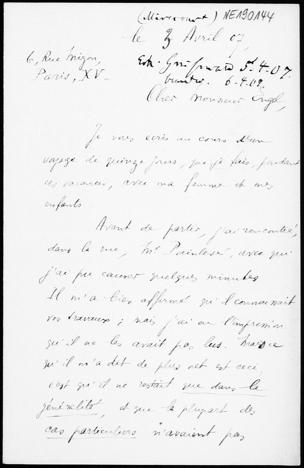 (Mirecourt) NE190A44
le 3 Avril 07,
6, Rue Mizon,
Paris, XV.
5.4.07.
6.4.07.
Cher Monsieur Engel,
Je vous écris au cours d'un
voyage de quinze jours, que je fais, pendant
ces vacances, avec ma femme et mes
enfants.
Avant de partir, j'ai rencontré,
dans la rue, Mr Painlevé, avec qui
j'ai pu causer quelques minutes.
Il m'a bien affirmé qu'il connaissait
vos travaux; mais j'ai eu l'impression
qu'il ne les avait pas lus.
qu'il m'a dit de plus net est ceci,
c'est qu'il ne restait que dans la
généralité, et que la plupart des
cas particuliers n'avaient pas